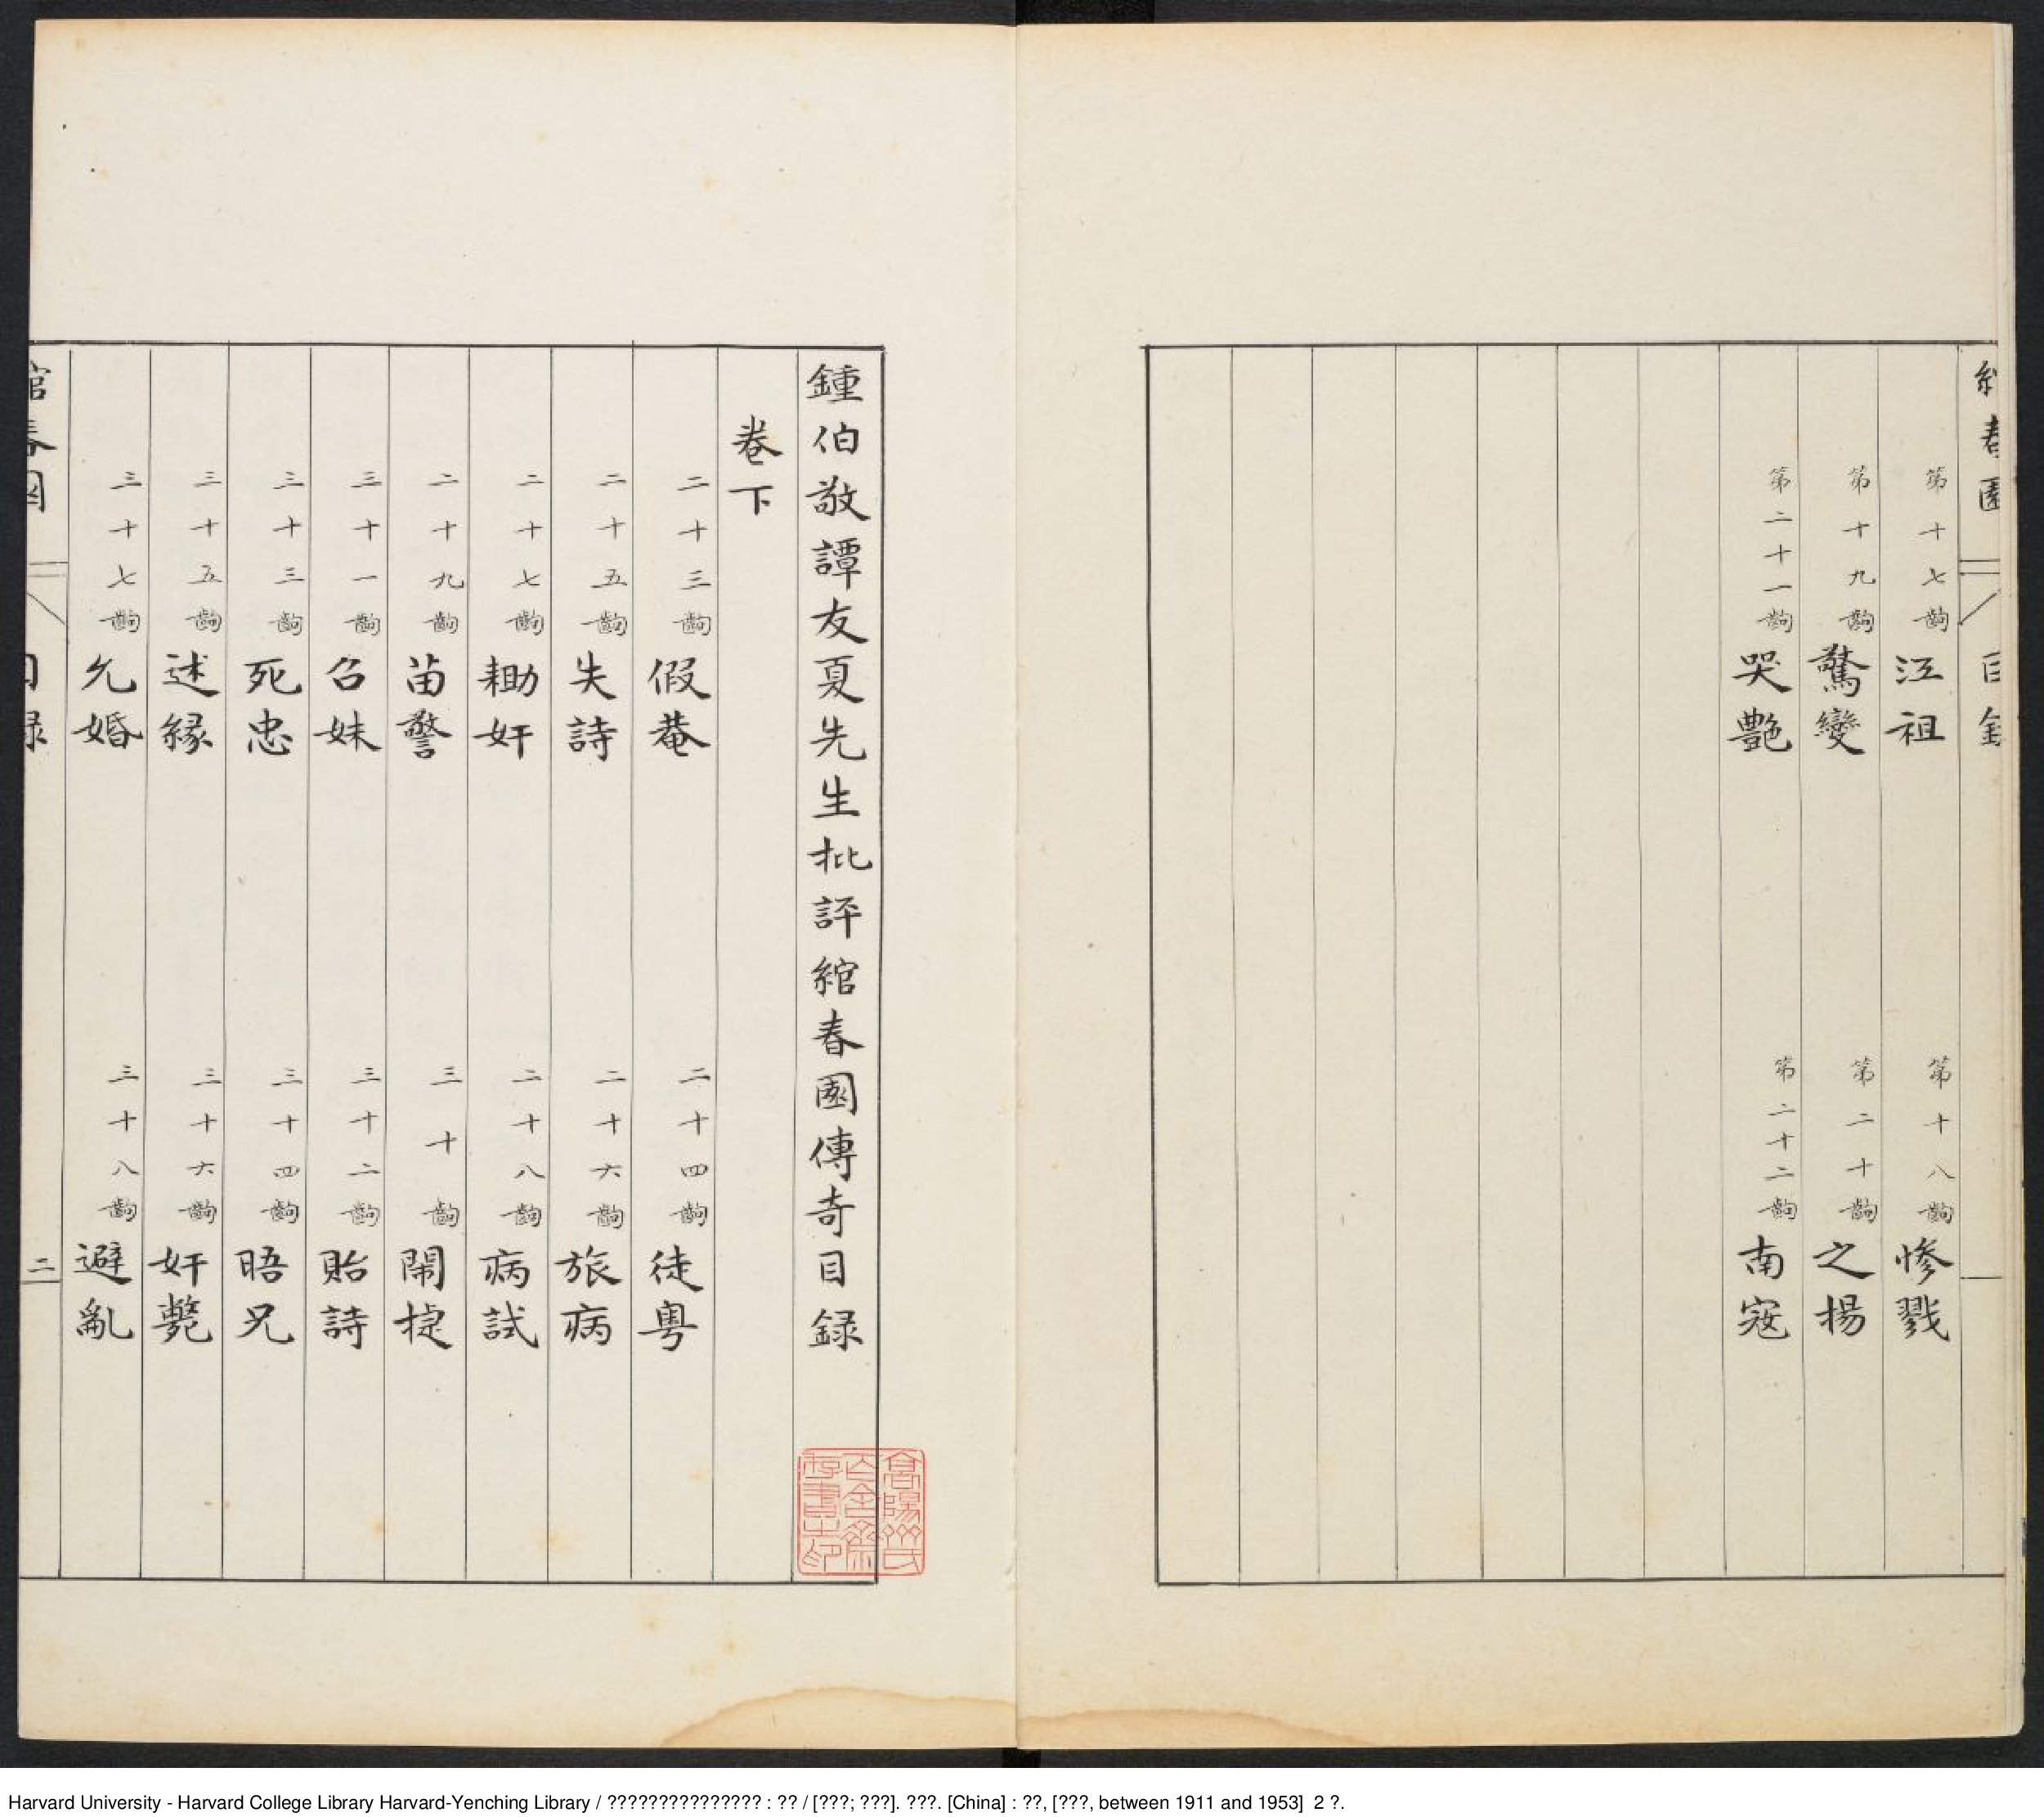 綰春園 目錄
第十七齣江祖 第十八齣慘戮
第十九齣驚變 第二十齣之揚
第二十一齣哭艷 第二十二齣南寇
鍾伯敬譚友夏先生批評綰春園傳奇目録
卷下
二十三齣假菴 二十四齣徒粵
二十五齣失詩 二十六齣旅病
二十七齣耡奸 二十八齣病試
二十九齣苗警 三十齣鬧捷
三十一齣召妹 三十二齣貽詩
三十三齣死忠 三十四齣晤兄
三十五齣述緣 三十六齣奸斃
三十七齣允婚 三十八齣避亂
綰春園 目録 二
Harvard University - Harvard College Library Harvard-Yenching Library / ??????????????? : ?? / [???; ???]. ???. [China] : ??, [???, between 1911 and 1953] 2 ?.